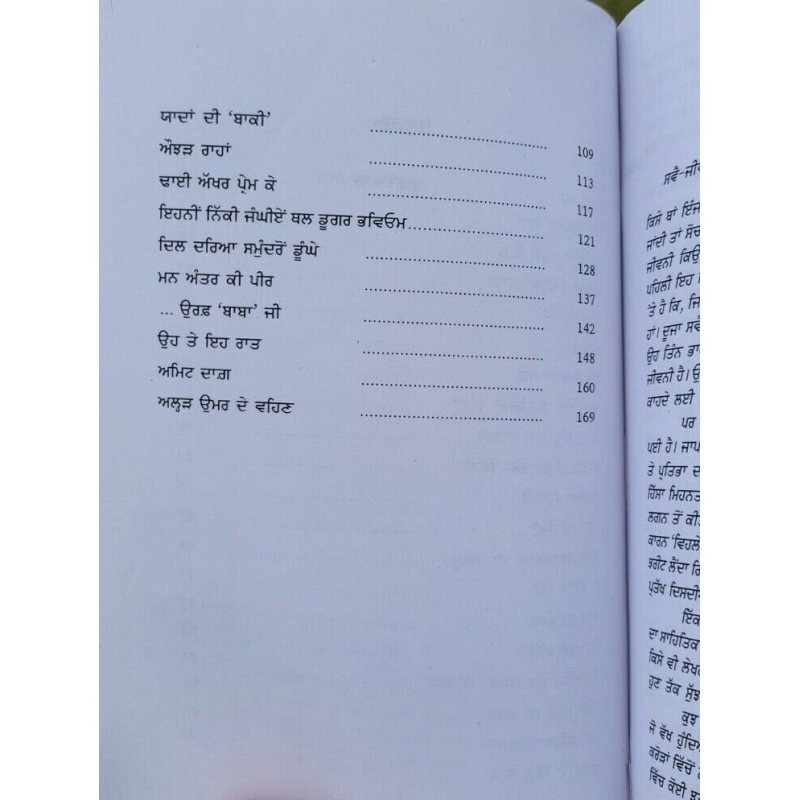 ਯਾਦਾਂ ਦੀ ‘ਬਾਕੀ’ ........ 109
ਔਝੜ ਰਾਹਾਂ ........ 113
ਢਾਈ ਅੱਖਰ ਪ੍ਰੇਮ ਕੇ ........ 117
ਇਹਨੀਂ ਨਿੱਕੀ ਜੰਘੀਏਂ ਥਲ ਡੂਗਰ ਭਵਿਓਮ ........ 121
ਦਿਲ ਦਰਿਆ ਸਮੁੰਦਰੋਂ ਡੂੰਘੇ ........ 128
ਮਨ ਅੰਤਰ ਕੀ ਪੀਰ ........ 137
... ਉਰਫ਼ ‘ਬਾਬਾ’ ਜੀ ........ 142
ਉਹ ਤੇ ਇਹ ਰਾਤ ........ 148
ਅਮਿਟ ਦਾਗ਼ ........ 160
ਅਲ੍ਹੜ ਉਮਰ ਦੇ ਵਹਿਣ ........ 169
ਕਿਸੇ ਥਾਂ ਇੰਜ
ਜਾਂਦੀ ਤਾਂ
ਜੀਵਨੀ
ਪਹਿਲੀ ਇਹ
’ਤੇ ਹੈ ਕਿ,
ਹਾਂ। ਦੂਜਾ
ਉਹ ਤਿੰਨ
ਜੀਵਨੀ ਹੈ।
ਕਾਹਦੇ ਲਈ
ਪਰ
ਪਈ ਹੈ।
ਤੇ ਪ੍ਰਤਿਭਾ
ਹਿੱਸਾ
ਲਗਨ ਤੋਂ
ਕਾਰਨ
ਝਰੀਟ ਲੈਂਦਾ
ਪ੍ਰਤੱਖ
ਇੱਕ
ਦਾ ਸਾਹਿਤਿਕ
ਕਿਸੇ ਵੀ
ਹੁਣ ਤੱਕ
ਕੁਝ
ਜੋ ਵੱਖ
ਕਰੋੜਾਂ ਵਿੱਚੋਂ
ਵਿੱਚ ਕੋਈ